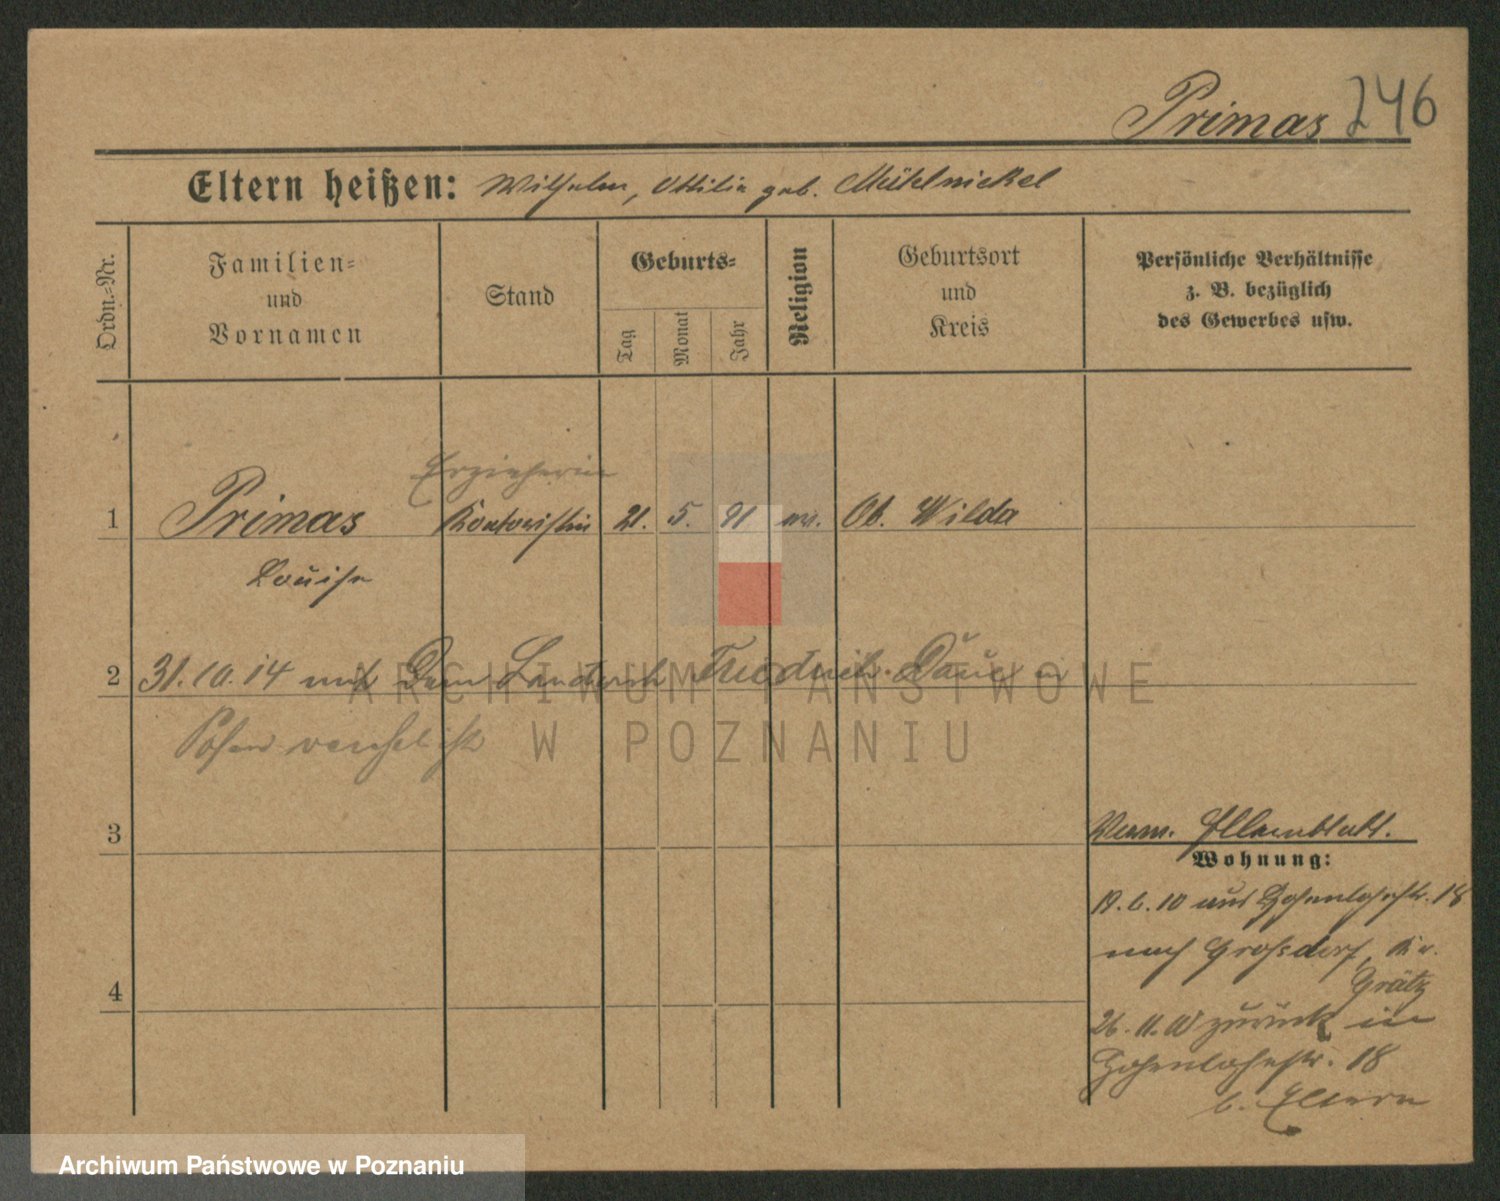 Primas 246
Eltern heißen: Wilhelm, Ottilie geb. Mühlnickel
Ordn.=Nr.
Familien=
und
Vornamen
Stand
Geburts=
Tag
Monat
Jahr
Religion
Geburtsort
und
Kreis
Persönliche Verhältnisse
z. B. bezüglich
des Gewerbes usw.
Erzieherin
1 Primas Kontoristin 21. 5. 91 Ob. Wilda
Louise
2 31.10.14 mit Dem Friedrich
Posen verehelicht
3
4
Wohnung:
19.6.10 aus Hohenlohestr. 18
nach Grossdorf, Kr.
Grätz
26.11.10 zurück in
Hohenlohestr. 18
b. Eltern
ARCHIWUM PAŃSTWOWE
W POZNANIU
Archiwum Państwowe w Poznaniu